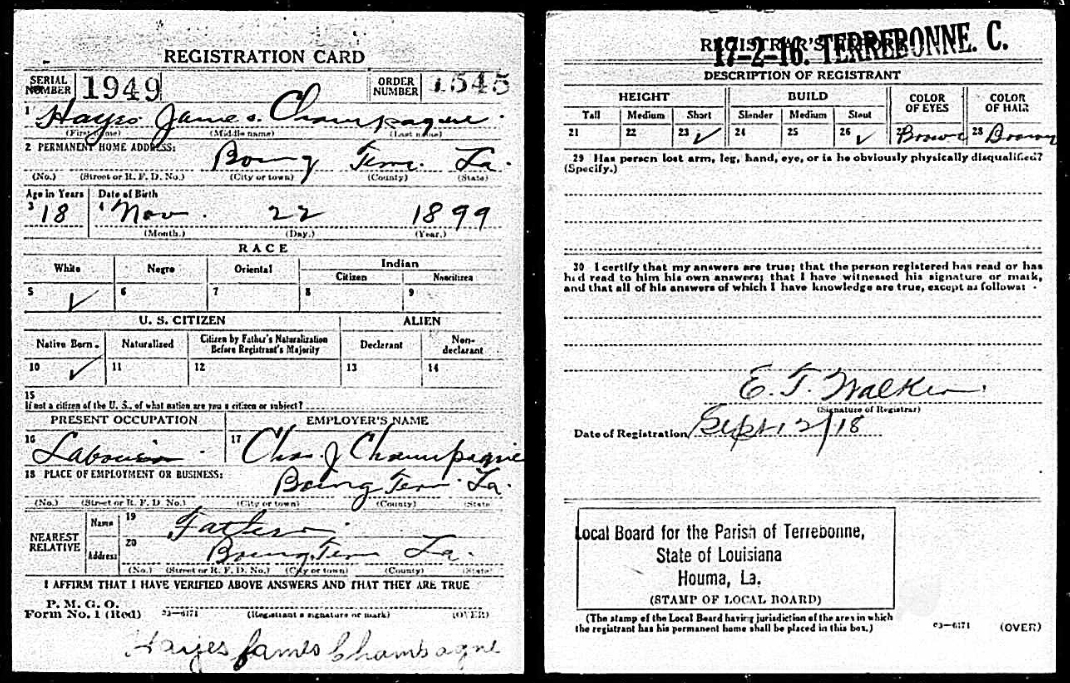 REGISTRATION CARD
SERIAL NUMBER 1949 ORDER NUMBER 1545
1 Hayes James Champagne
(First name) (Middle name) (Last name)
2 PERMANENT HOME ADDRESS:
Bourg Terr. La.
(No.) (Street or R. F. D. No.) (City or town) (County) (State)
Age in Years Date of Birth
3 18 4 Nov. 22 1899
(Month.) (Day.) (Year.)
RACE
White Negro Oriental Indian
Citizen Noncitizen
5 ✓ 6 7 8 9
U. S. CITIZEN ALIEN
Native Born. Naturalized Citizen by Father's Naturalization Before Registrant's Majority Declarant Non-declarant
10 ✓ 11 12 13 14
15
If not a citizen of the U. S., of what nation are you a citizen or subject?
PRESENT OCCUPATION EMPLOYER'S NAME
16 17 Chas J Champagne
18 PLACE OF EMPLOYMENT OR BUSINESS:
Bourg Terr. La.
(No.) (Street or R. F. D. No.) (City or town) (County) (State)
NEAREST RELATIVE
Name 19 Father
Address 20 Bourg Terr La.
(No.) (Street or R. F. D. No.) (City or town) (County) (State)
I AFFIRM THAT I HAVE VERIFIED ABOVE ANSWERS AND THAT THEY ARE TRUE
P. M. G. O.
Form No. 1 (Red) 03—6171 (Registrant's signature or mark) (OVER)
Hayes James Champagne
REGISTRAR'S
17-2-16. TERREBONNE. C.
DESCRIPTION OF REGISTRANT
HEIGHT BUILD COLOR OF EYES COLOR OF HAIR
Tall Medium Short Slender Medium Stout
21 22 23 ✓ 24 25 26 ✓ 27 Brown 28 Brown
29 Has person lost arm, leg, hand, eye, or is he obviously physically disqualified?
(Specify.)
30 I certify that my answers are true; that the person registered has read or has
had read to him his own answers; that I have witnessed his signature or mark,
and that all of his answers of which I have knowledge are true, except as follows:
E. T. Walker
(Signature of Registrar)
Date of Registration Sept. 12/18
Local Board for the Parish of Terrebonne,
State of Louisiana
Houma, La.
(STAMP OF LOCAL BOARD)
(The stamp of the Local Board having jurisdiction of the area in which
the registrant has his permanent home shall be placed in this box.)
03—6171 (OVER)